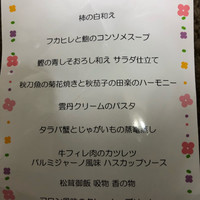 柿の白和え
フカヒレと鮑のコンソメスープ
鰹の青しそおろし和え サラダ仕立て
秋刀魚の菊花焼きと秋茄子の田楽のハーモニー
雲丹クリームのパスタ
タラバ蟹とじゃがいもの蒸篭蒸し
牛フィレ肉のカツレツ
パルミジャーノ風味 ハスカップソース
松茸御飯 吸物 香の物